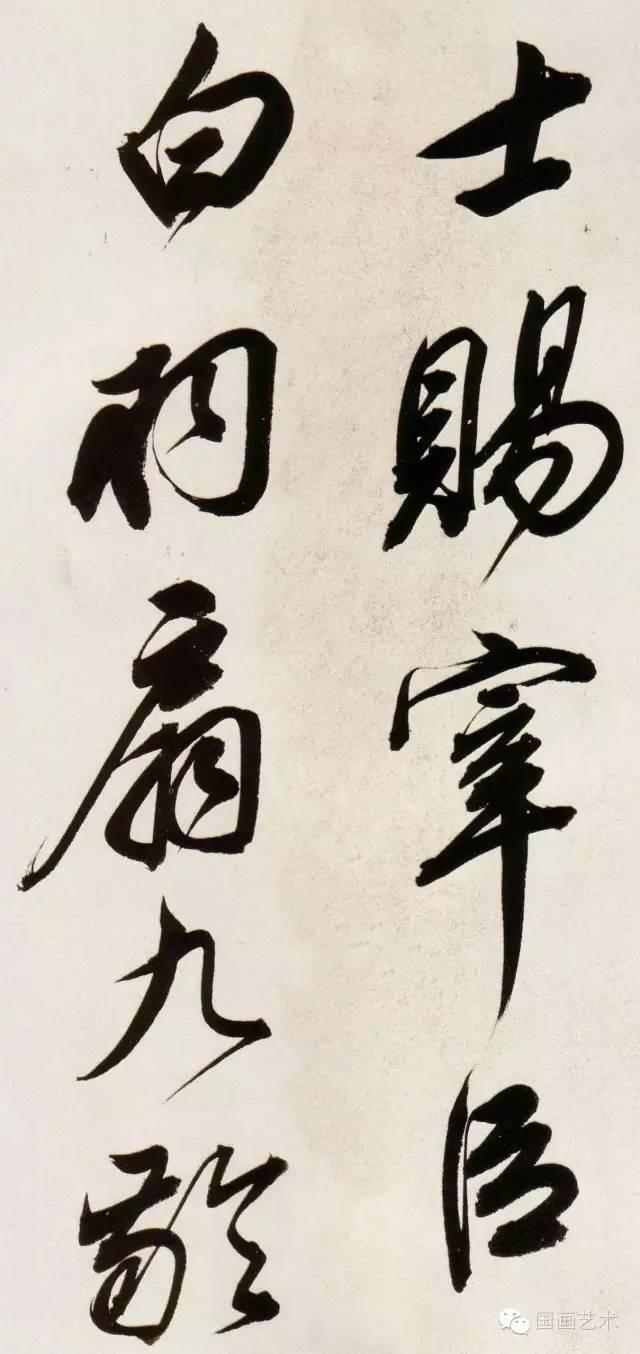 士賜宰臣
白羽扇九齡
国画艺术